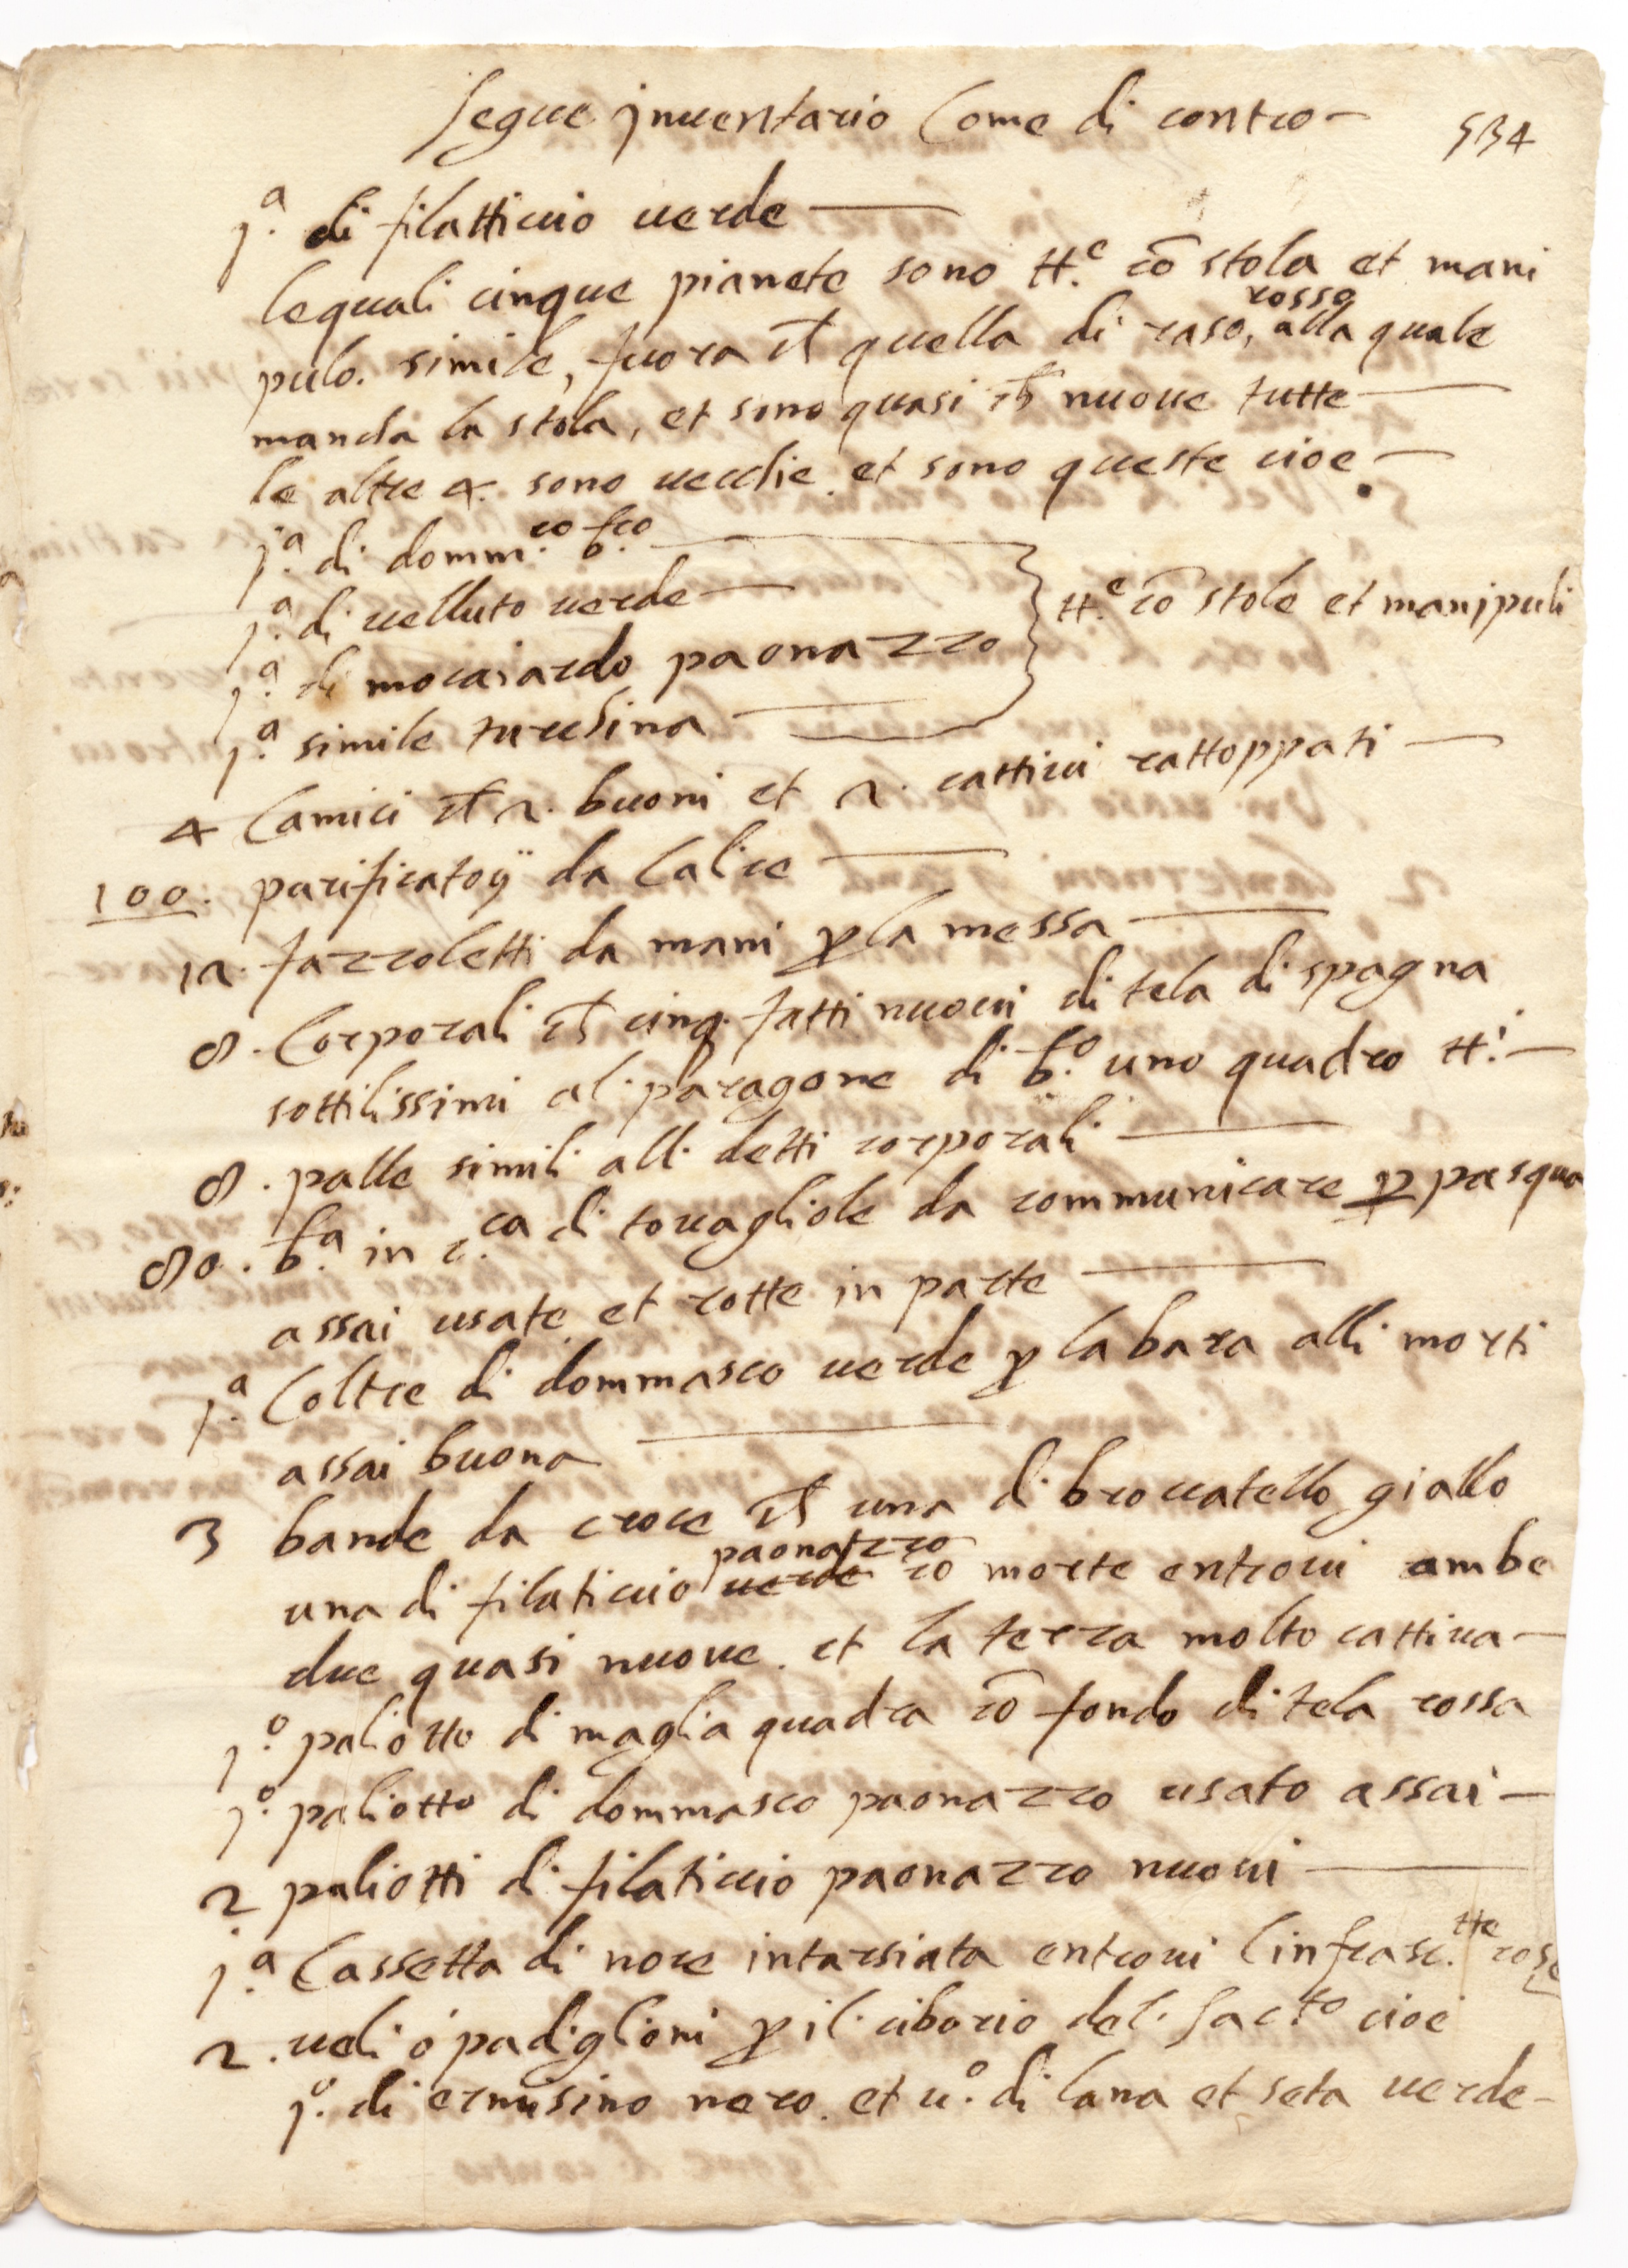 Segue Inuentario Come di contro
534
j.a di filatticcio uerde
lequali cinque pianete sono tt.e cō stola et mani
pulo. simile, fuora ch quella di raso, rosso alla quale
manda la stola, et sono quasi ch nuoue tutte
le altre 4. sono uecchie. et sono queste cioe
j.a di domm.co b.co
j.a di uelluto uerde
j.a di mocaiardo paonazzo
tt.e cō stole et manipuli
j.a simile turchina
4 Camici ch 2. buoni et 2. cattiui rattoppati
100. purificatoij da Calice
12. fazzoletti da mani p la messa
8. Corporali ch cinq. fatti nuoui di tela di spagna
sottilissimi al paragone di b.o uno quadro tt.i
8. palle simili alli detti corporali
80. b.a in c.ca di touagliole da communicare p pasqua
assai usate et rotte in parte
j.a Coltre di dommasco uerde p la bara alli morti
assai buona
3 bande da croce ch una di broccatello giallo
una di filaticcio uerde paonazzo cō morte entroui ambe
due quasi nuoue. et la terza molto cattiua
j.o paliotto di maglia quadra cō fondo di tela rossa
j.o paliotto di dommasco paonazzo usato assai
2 paliotti di filaticcio paonazzo nuoui
j.a Cassetta di noce intarsiata entroui l'infrasc.tte cose
2. ueli ó padiglioni p il ciborio del Sacto cioè
j.o di ermisino nero. et u.o di lana et seta uerde